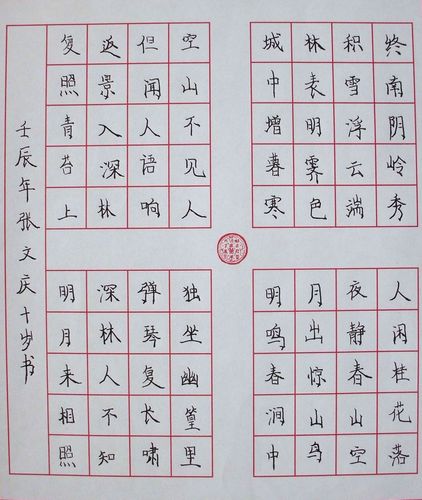 终南阴岭秀
积雪浮云端
林表明霁色
城中增暮寒
人闲桂花落
夜静春山空
月出惊山鸟
明鸣春涧中
空山不见人
但闻人语响
返景入深林
复照青苔上
独坐幽篁里
弹琴复长啸
深林人不知
明月来相照
壬辰年张文庆十岁书